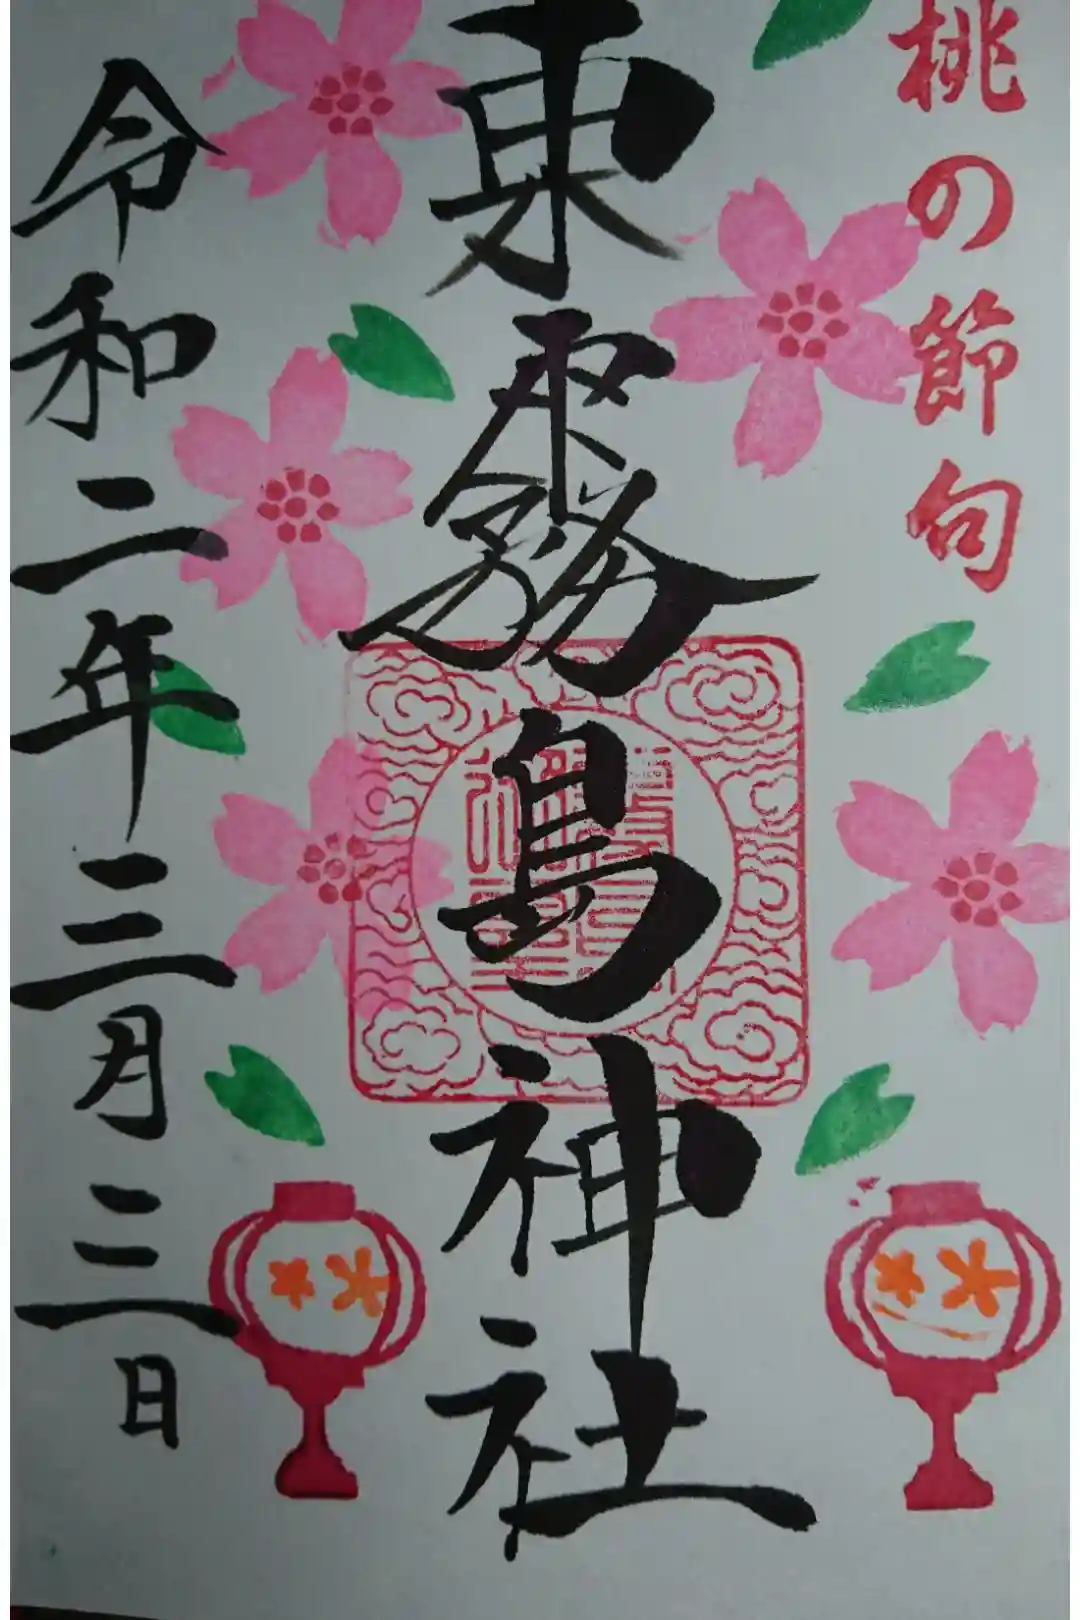 桃の節句
東霧島神社
令和二年三月二日